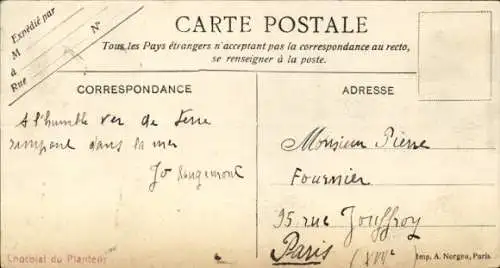 Expédié par
M
à
Rue
N°
CARTE POSTALE
Tous les Pays étrangers n'acceptant pas la correspondance au recto,
se renseigner à la poste.
CORRESPONDANCE
A l'humble ver de terre
rampant dans la mer
Jo
ADRESSE
Monsieur Pierre
Fournier
95 rue Jouffroy
Paris
Chocolat du Planteur
Imp. A. Norgeu, Paris.